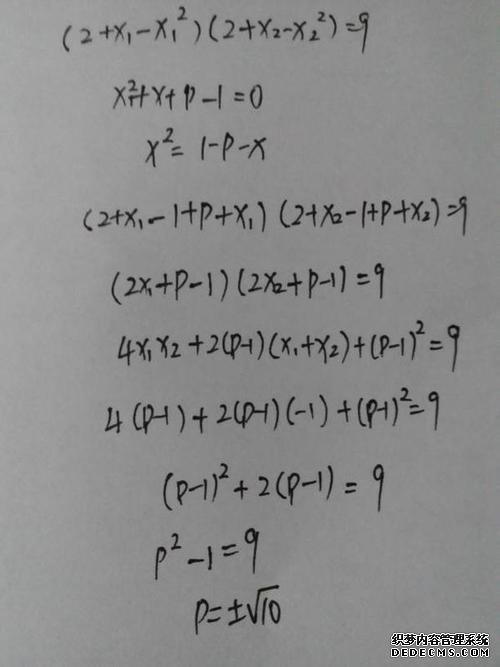 (2+x₁-x₁²)(2+x₂-x₂²)=9
x²+x+p-1=0
x²=1-p-x
(2+x₁-1+p+x₁)(2+x₂-1+p+x₂)=9
(2x₁+p-1)(2x₂+p-1)=9
4x₁x₂+2(p-1)(x₁+x₂)+(p-1)²=9
4(p-1)+2(p-1)(-1)+(p-1)²=9
(p-1)²+2(p-1)=9
p²-1=9
p=±√10
织梦内容管理系统
DEDECMS.COM